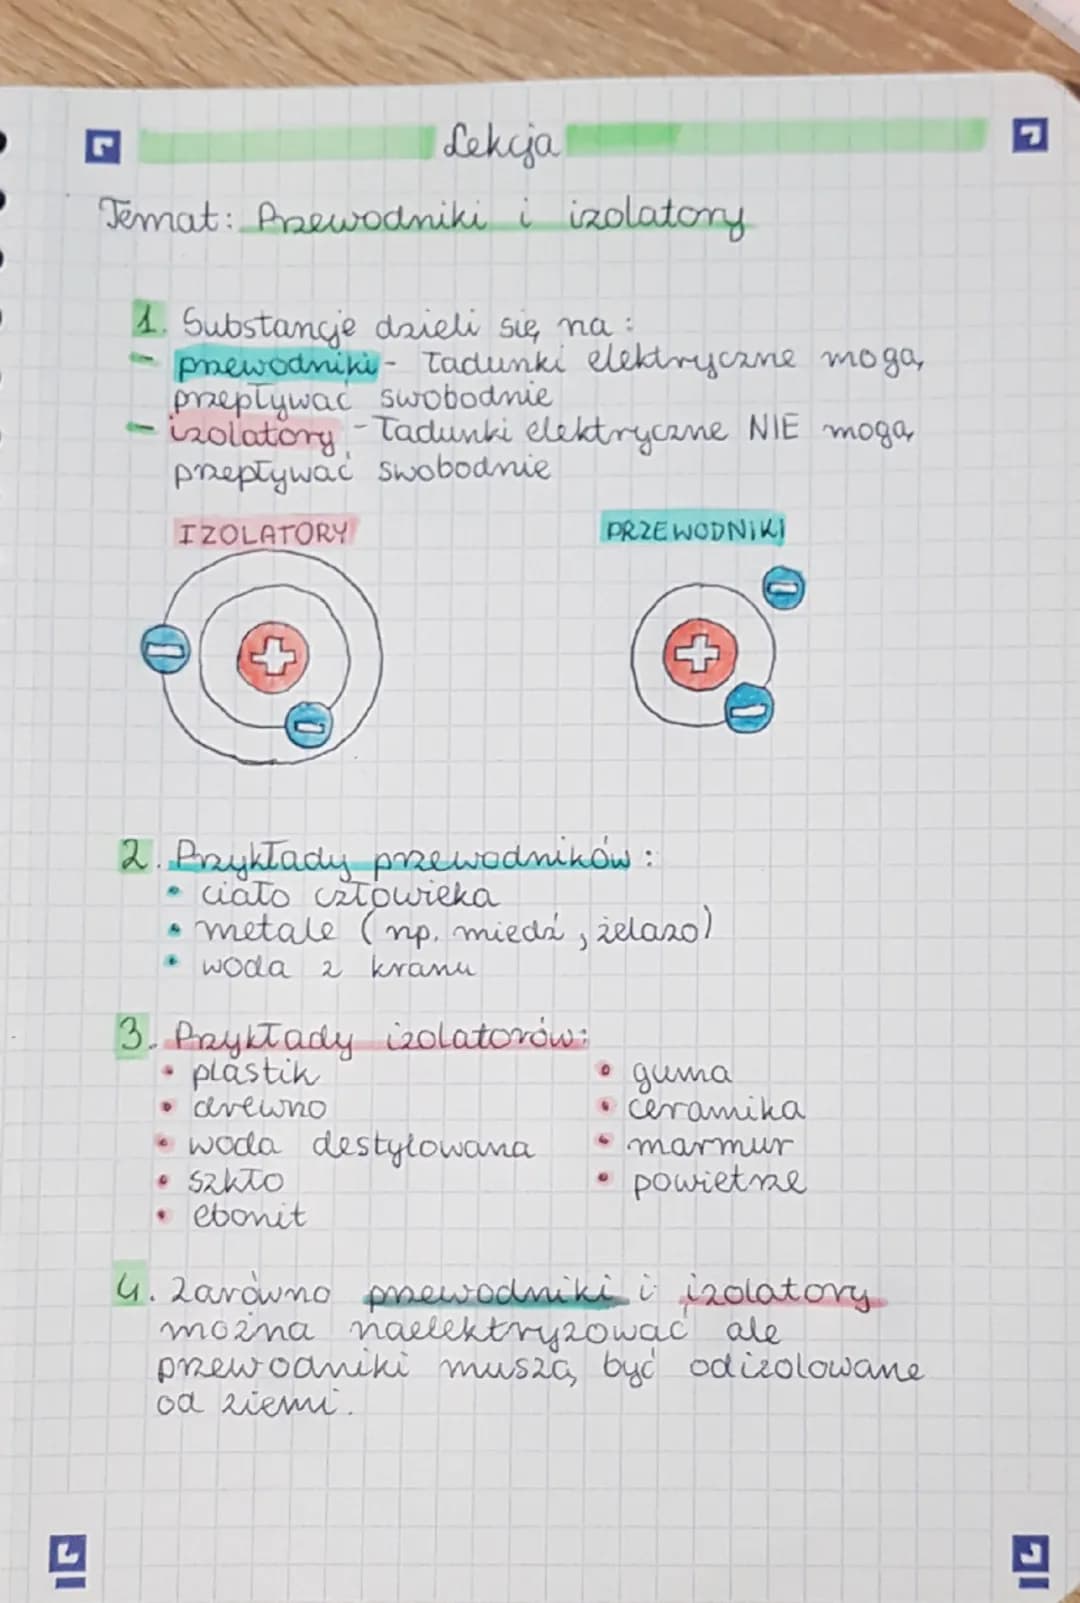 Lekcja
Temat: Przewodniki i izolatory
1. Substancje dzieli się na:
- przewodniki - ładunki elektryczne mogą
przepływać swobodnie
- izolatory - ładunki elektryczne NIE mogą
przepływać swobodnie
IZOLATORY PRZEWODNIKI
2. Przykłady przewodników:
• ciało człowieka
• metale (np. miedź, żelazo)
• woda z kranu
3. Przykłady izolatorów:
• plastik
• drewno
• woda destylowana
• szkło
• ebonit
• guma
• ceramika
• marmur
• powietrze
4. Zarówno przewodniki i izolatory
można naelektryzować ale
przewodniki muszą być odizolowane
od ziemi.